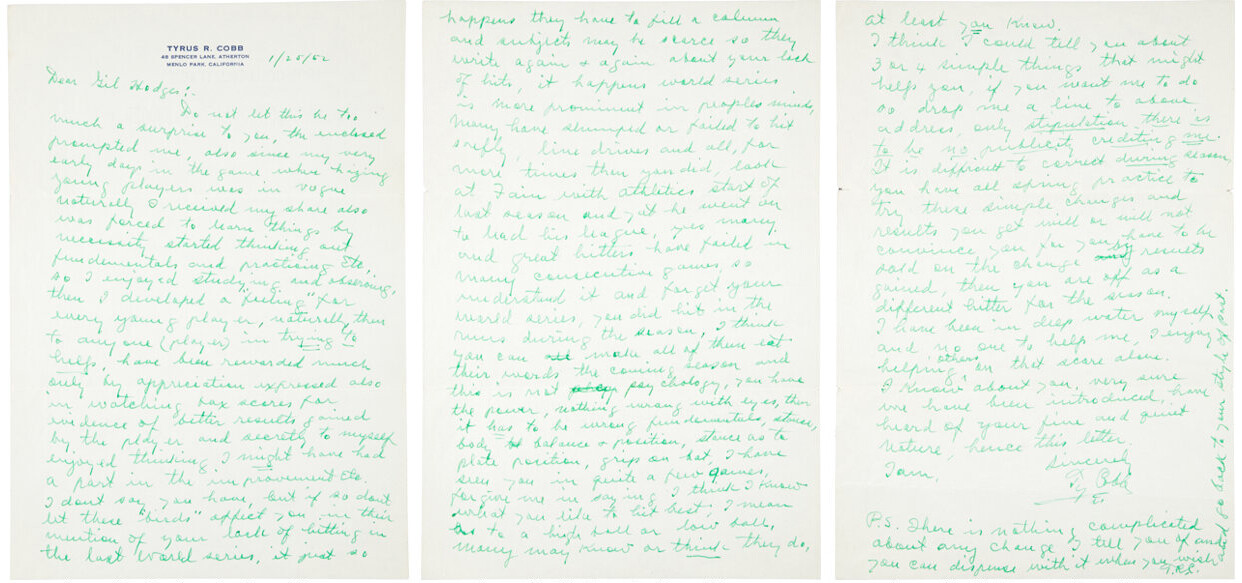 TYRUS R. COBB
48 SPENCER LANE, ATHERTON
MENLO PARK, CALIFORNIA
1/25/52
Dear Gil Hodges:-
Do not let this be too
much a surprise to you, the enclosed
prompted me, also since my very
early days in the game when hazing
young players was in vogue
naturally I received my share also
was forced to learn things by
necessity started thinking out
fundamentals and practising Etc.
so I enjoyed studying and observing,
then I developed a "feeling" for
every young player, naturally then
to anyone (player) in trying to
help, have been rewarded much
only by appreciation expressed also
in watching box scores for
evidence of better results gained
by the player and secretly to myself
enjoyed thinking I might have had
a part in the improvement Etc.
I dont say you have, but if so dont
let these "birds" affect you in their
mention of your lack of hitting in
the last world series, it just so
happens they have to fill a column
and subjects may be scarce so they
write again & again about your lack
of hits, it happens world series
is more prominent in peoples minds,
many have slumped or failed to hit
safely, line drives and all, for
more times then you did, look
at Fain with athletics start of
last season and yet he went on
to lead his league, yes many
and great hitters have failed in
many consecutive games, so
understand it and forget your
world series, you did hit in the
runs during the season, I think
you can make all of them eat
their words the coming season and
this is not psychology, you have
the power, nothing wrong with eyes, then
it has to be wrong fundamentals, stance,
body balance & position, stance as to
plate position, grip on bat, I have
seen you in quite a few games,
forgive me in saying I think I know
what you like to hit best, I mean
as to a high ball or low ball,
many may know or think they do,
at least you know.
I think I could tell you about
3 or 4 simple things that might
help you, if you want me to do
so drop me a line to above
address, only stipulation there is
to be no publicity crediting me.
It is difficult to correct during season,
you have all spring practice to
try these simple changes and
results you get will or will not
convince you for you have to be
sold on the change by results
gained, then you are off as a
different hitter for the season.
I have been in deep water myself
and no one to help me, I enjoy
helping others, on that score alone.
I know about you, very sure
we have been introduced, have
heard of your fine and quiet
nature, hence this letter.
I am,
Sincerely
Ty Cobb
P.S. There is nothing complicated
about any change I tell you of and
you can dispense with it when you wish
and go back to your style of past.
T.R.C.